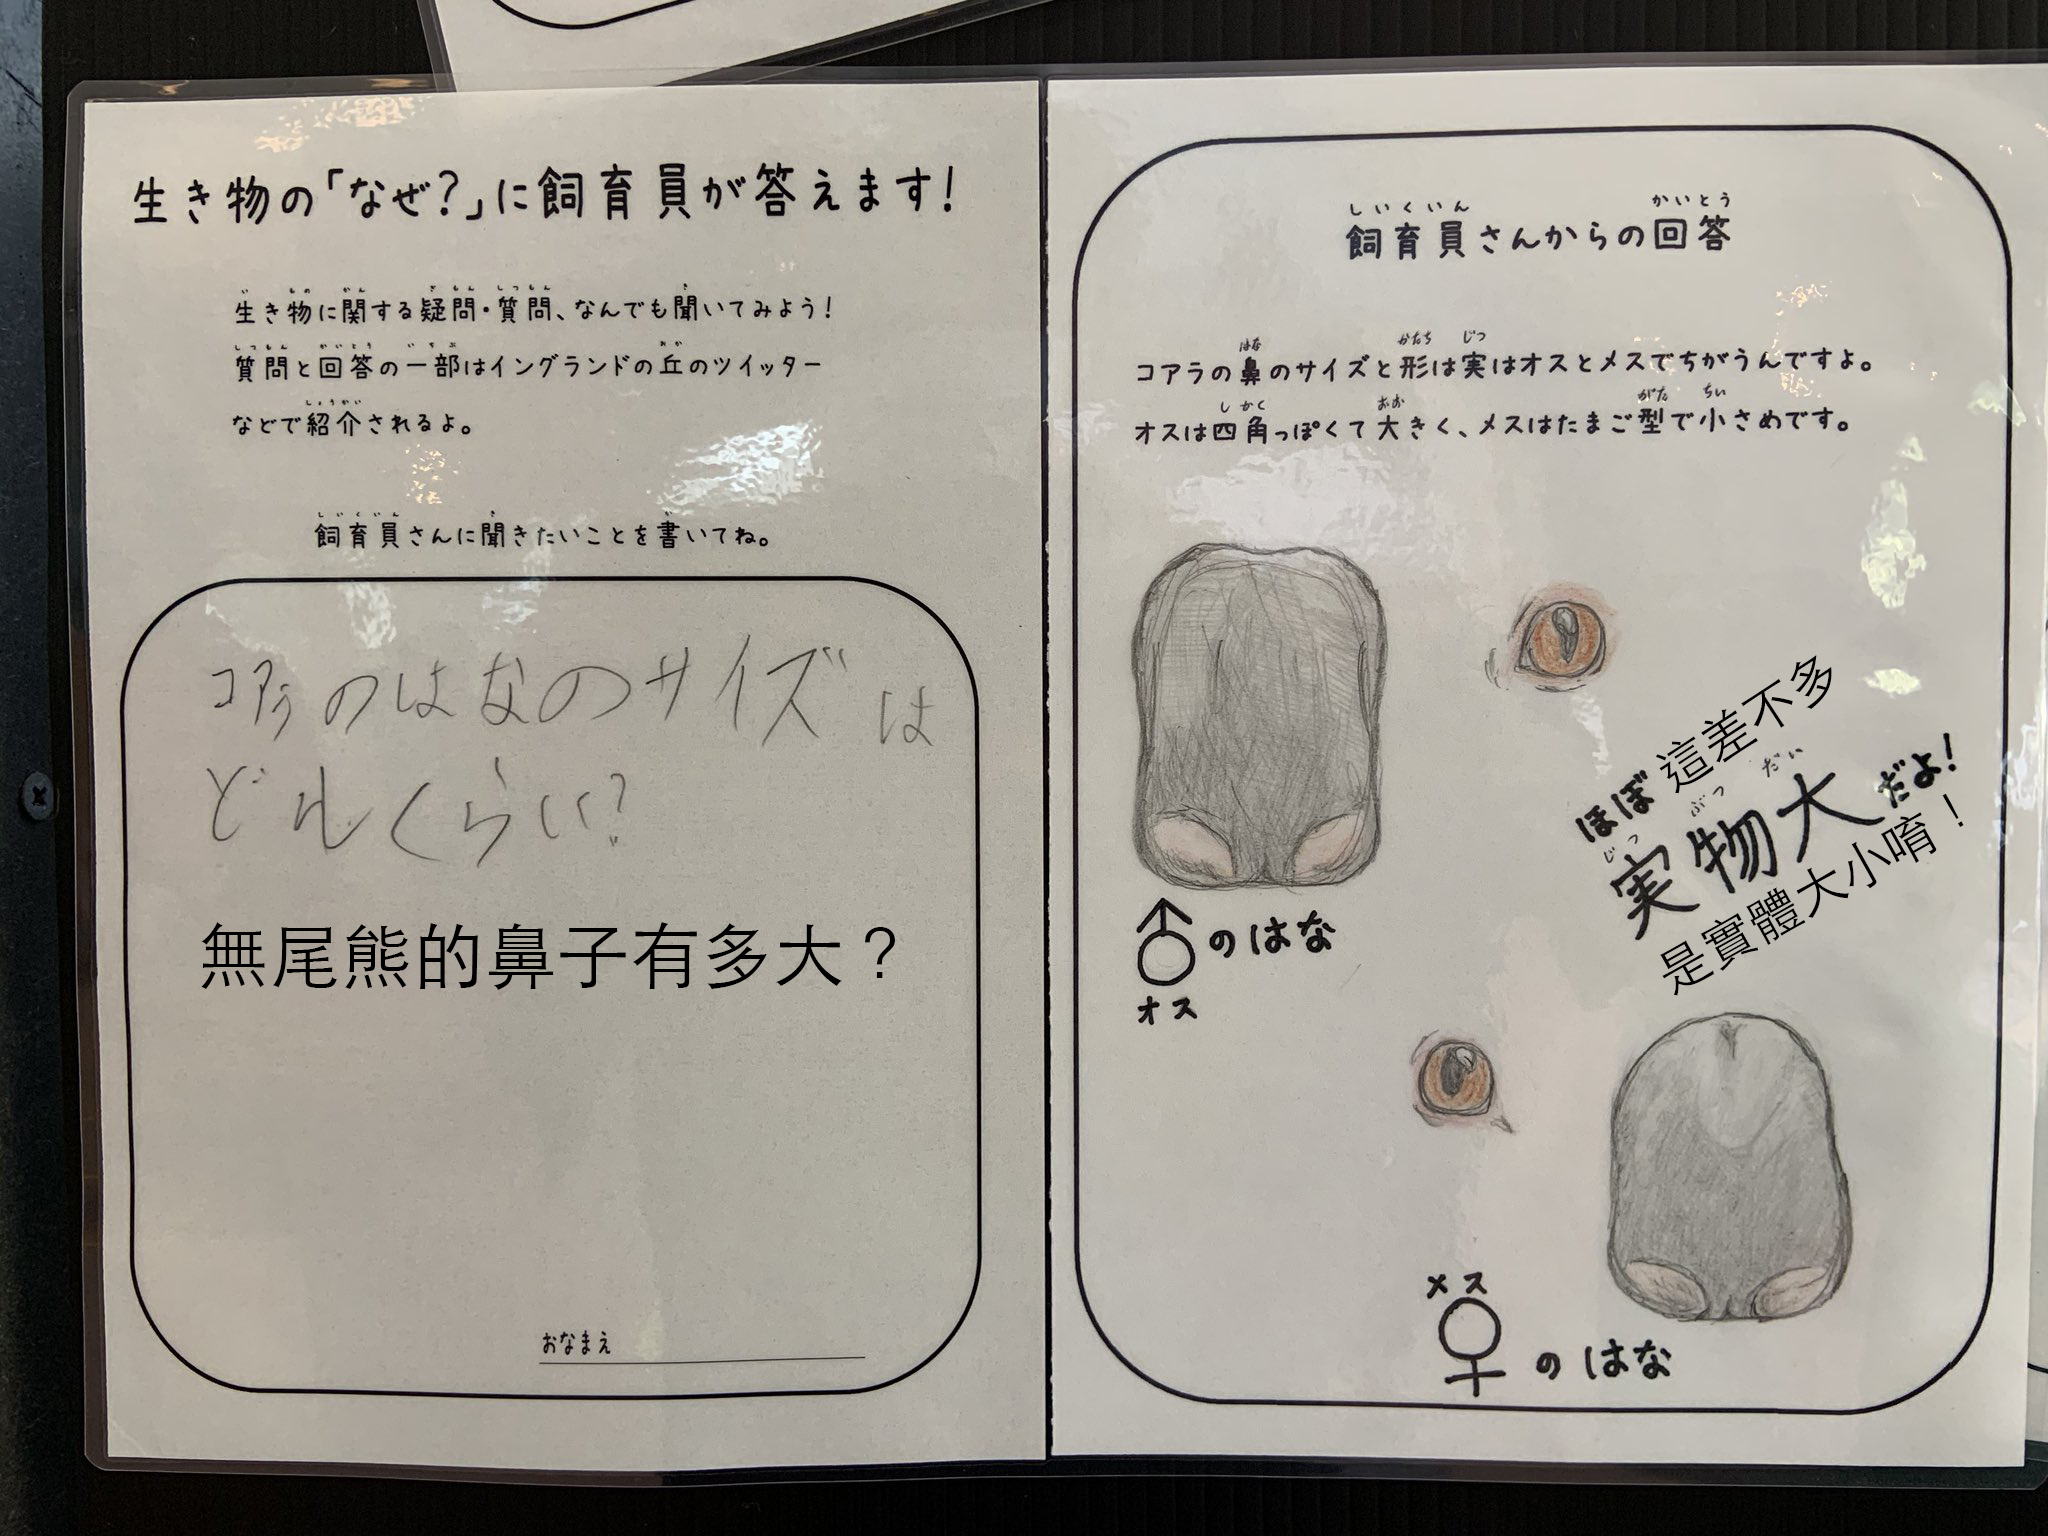 生き物の「なぜ?」に飼育員が答えます!
い もの かん ぎもん しつもん き
生き物に関する疑問・質問、なんでも聞いてみよう!
しつもん かいとう いちぶ おか
質問と回答の一部はイングランドの丘のツイッター
しょうかい
などで紹介されるよ。
しいくいん き か
飼育員さんに聞きたいことを書いてね。
コアラのはなのサイズは
どれくらい?
無尾熊的鼻子有多大？
おなまえ
しいくいん かいとう
飼育員さんからの回答
はな かたち じつ
コアラの鼻のサイズと形は実はオスとメスでちがうんですよ。
しかく おお がた ちい
オスは四角っぽくて大きく、メスはたまご型で小さめです。
ほぼ 這差不多
じつ ぶつ だい
実物大だよ!
是實體大小唷！
♂のはな
オス
メス
♀のはな